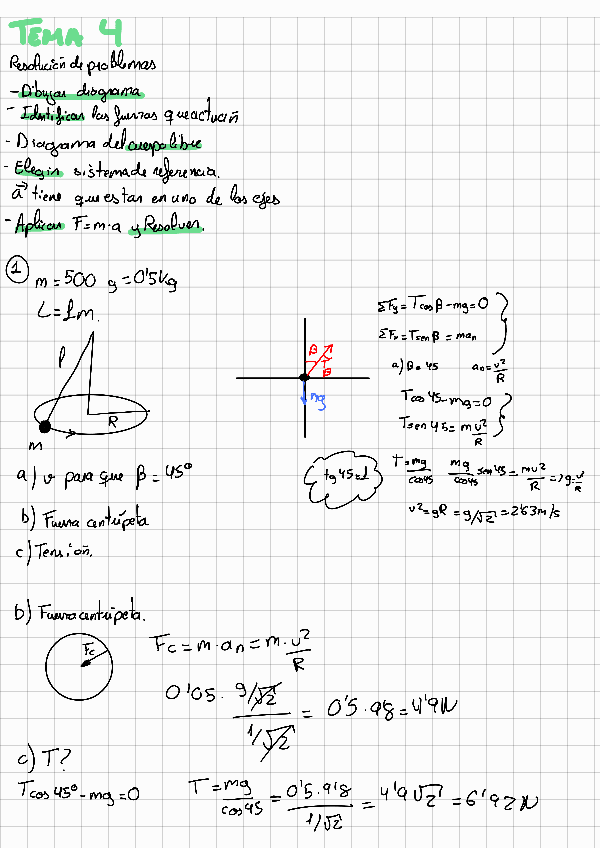 TEMA 4
Resolución de problemas
- Dibujar diagrama
- Identificar las fuerzas que actuan
- Diagrama del cuerpo libre
- Elegir sistema de referencia.
a⃗ tiene que estar en uno de los ejes
- Aplicar F=m·a y Resolver.
1
m = 500 g = 0'5 Kg
L = 1 m.
l
R
m
β
T
β
mg
ΣFy = T cos β - mg = 0
ΣFx = T sen β = man
a) β = 45 an = v²/R
T cos 45 - mg = 0
T sen 45 = m v²/R
tg 45 = 1
T = mg/cos45 mg/cos45 sen 45 = mv²/R => g = v²/R
v² = gR = g/√2 = 2'63 m/s
a) v para que β = 45°
b) Fuerza centrípeta
c) Tensión.
b) Fuerza centrípeta.
Fc
Fc = m · an = m · v²/R
0'05 · g/√2 / 1/√2 = 0'5 · 98 = 4'9 N
c) T?
T cos 45° - mg = 0
T = mg/cos45 = 0'5 · 9'8 / 1/√2 = 4'9 √2 = 6'92 N